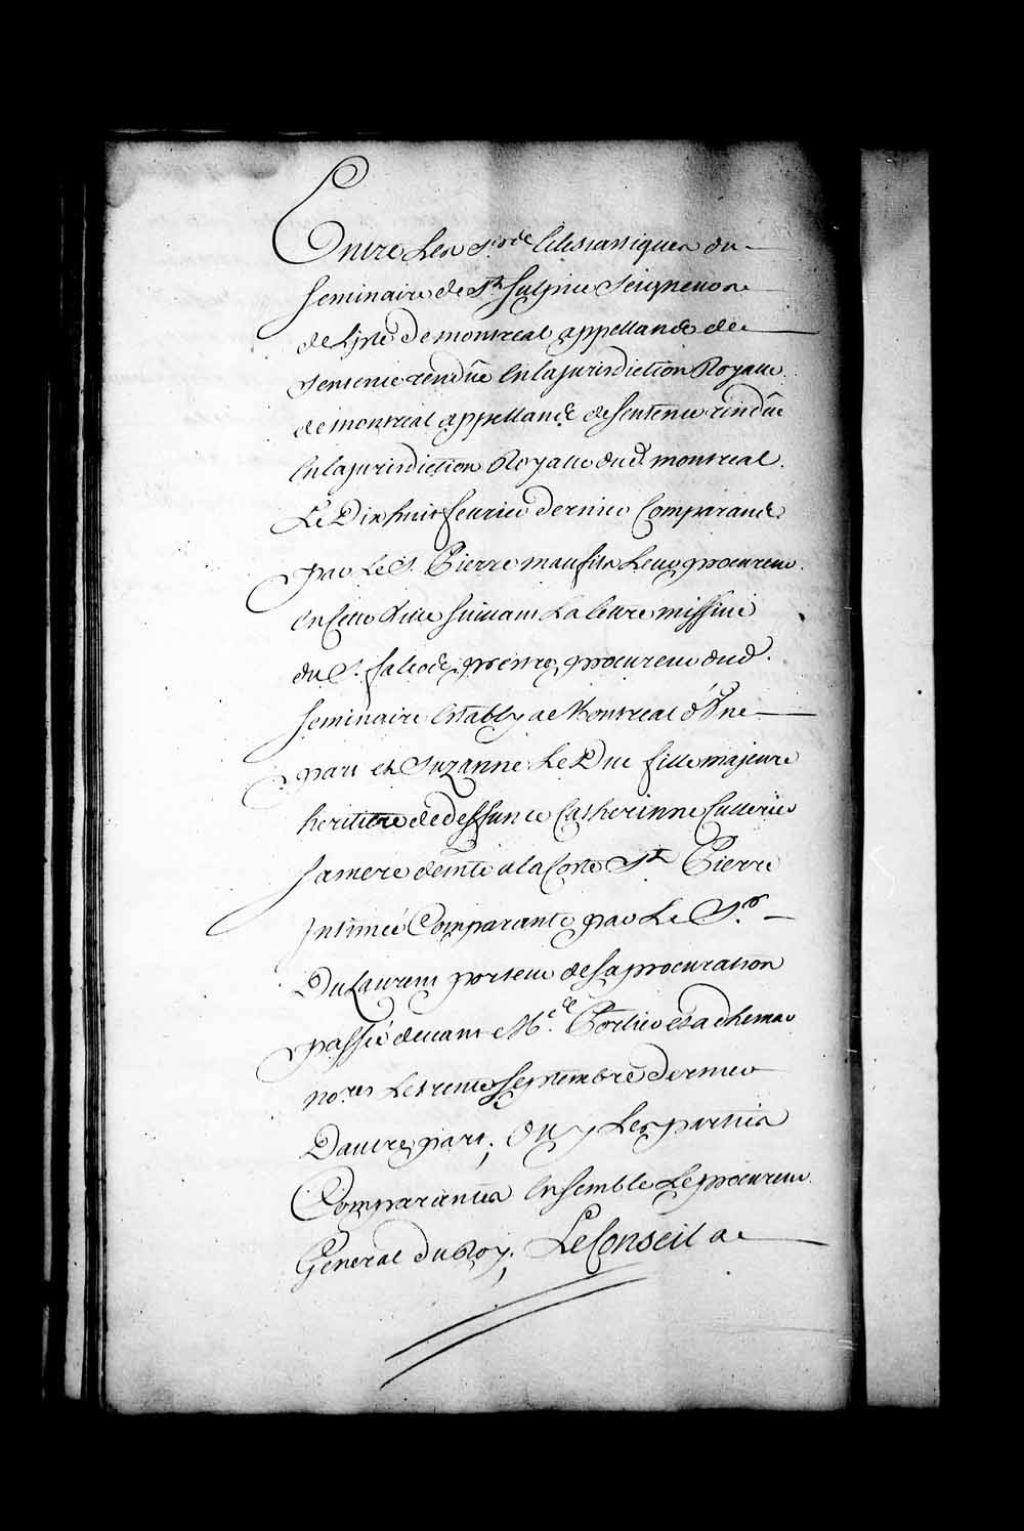 Entre Les Srs Eclesiastiques du
Seminaire de St Sulpice Seigneurs
de L'jsle de montreal appellands de
sentence rendüe En la jurisdiction Royalle
de montreal appellands de sentence rendüe
En la jurisdiction Royalle dud montreal.
Le Dix huit feurier dernier Comparands
par Le S. Pierre maufils Leur procureur
en Cette Ville suiuant La lettre missiue
du S. prestre, procureur dud.
Seminaire Estably a Montreal d'Vne
part et Suzanne Le Duc fille majeure
heritiere de deffunte Catherinne Cullerier
sa mere demte a la Coste St Pierre
Intimée Comparante par Le Sr.
DuLaurent porteur de sa procuration
passée deuant Me. Porlier et adhemar
nores Le trente septembre dernier
D'autre part; Ouy Les parties
Comparantes Ensemble Le procureur
General du Roy; Le Conseil a